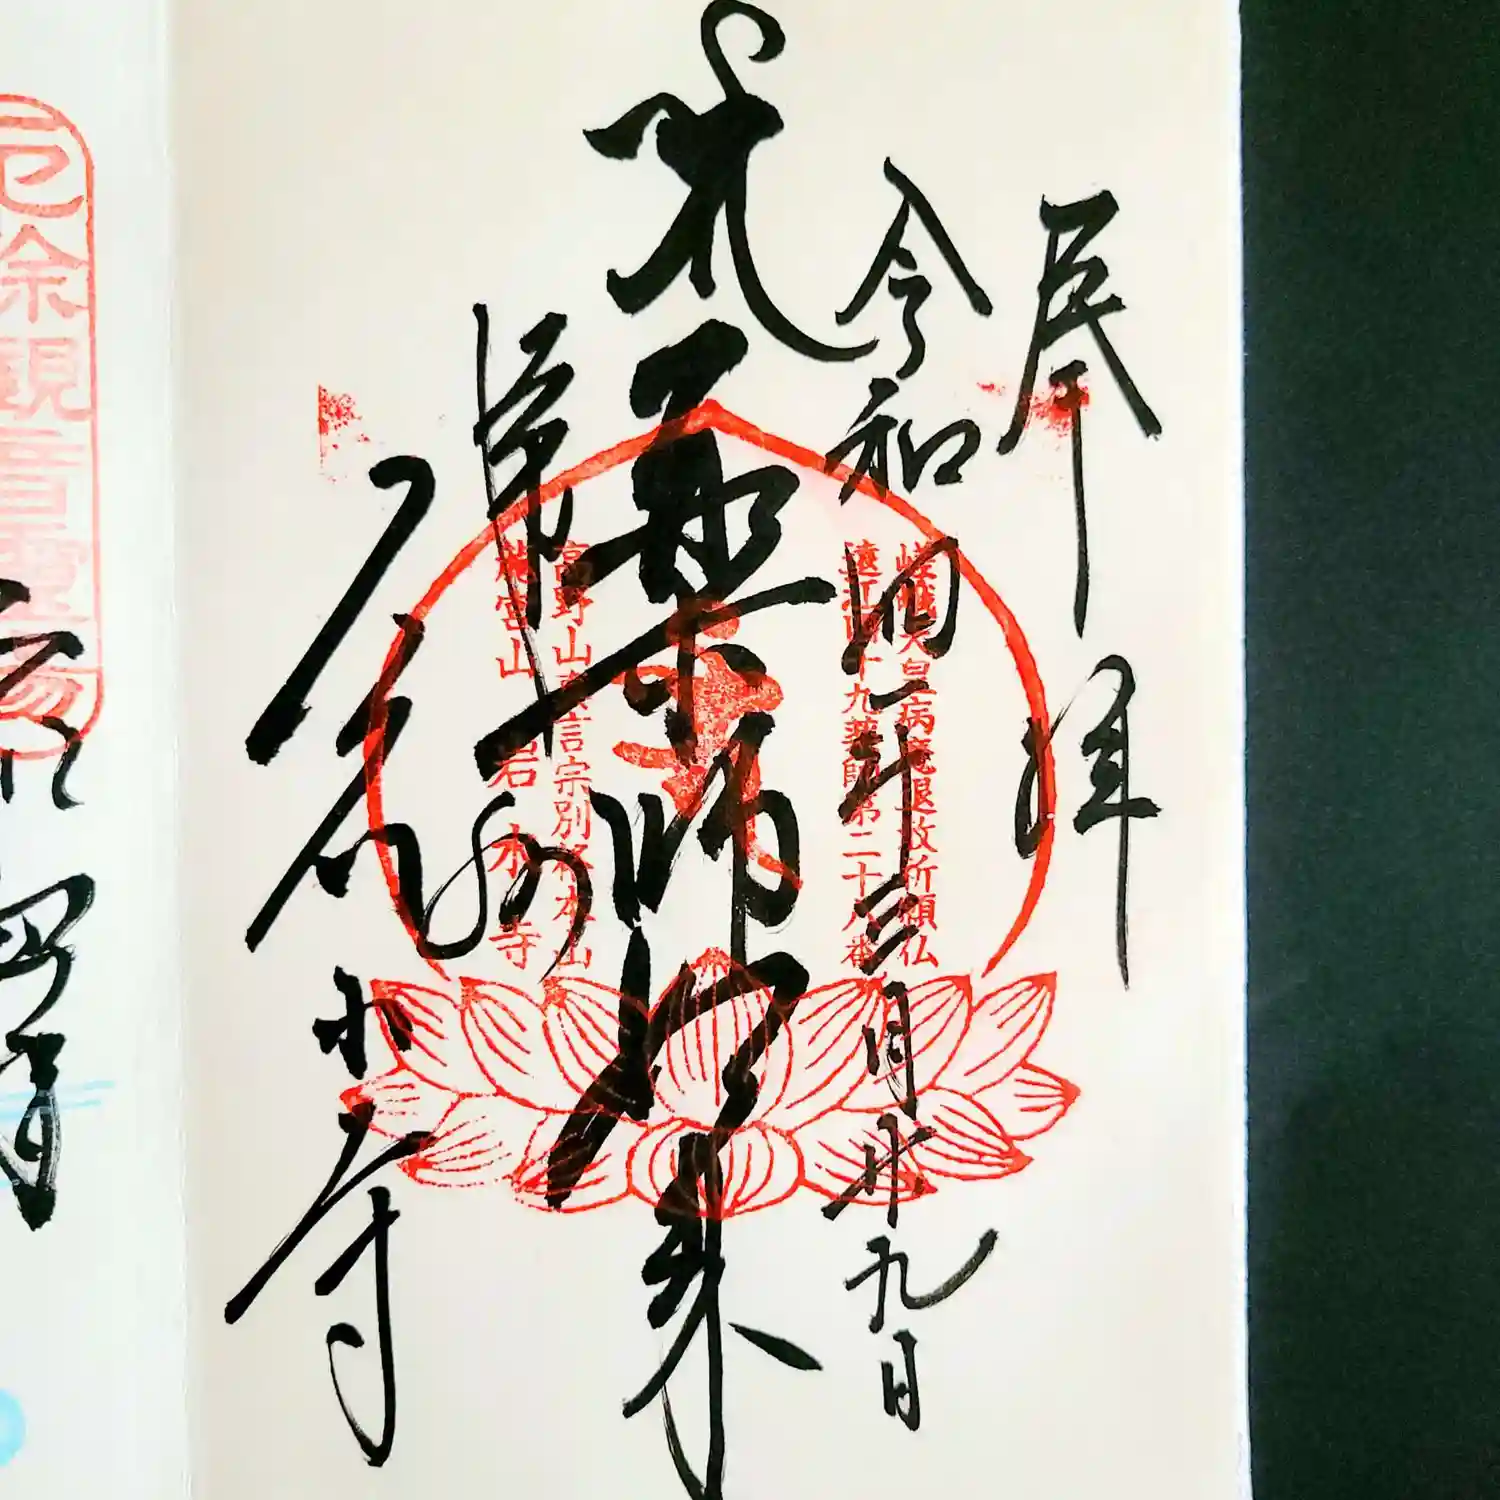 奉拝
令和四年三月廿九日
嵯峨天皇病魔退散祈願仏
遠江四十九薬師第二十八番
薬師如来
高野山真言宗別格本山
龍宮山 岩水寺
岩水寺
厄除観音霊場